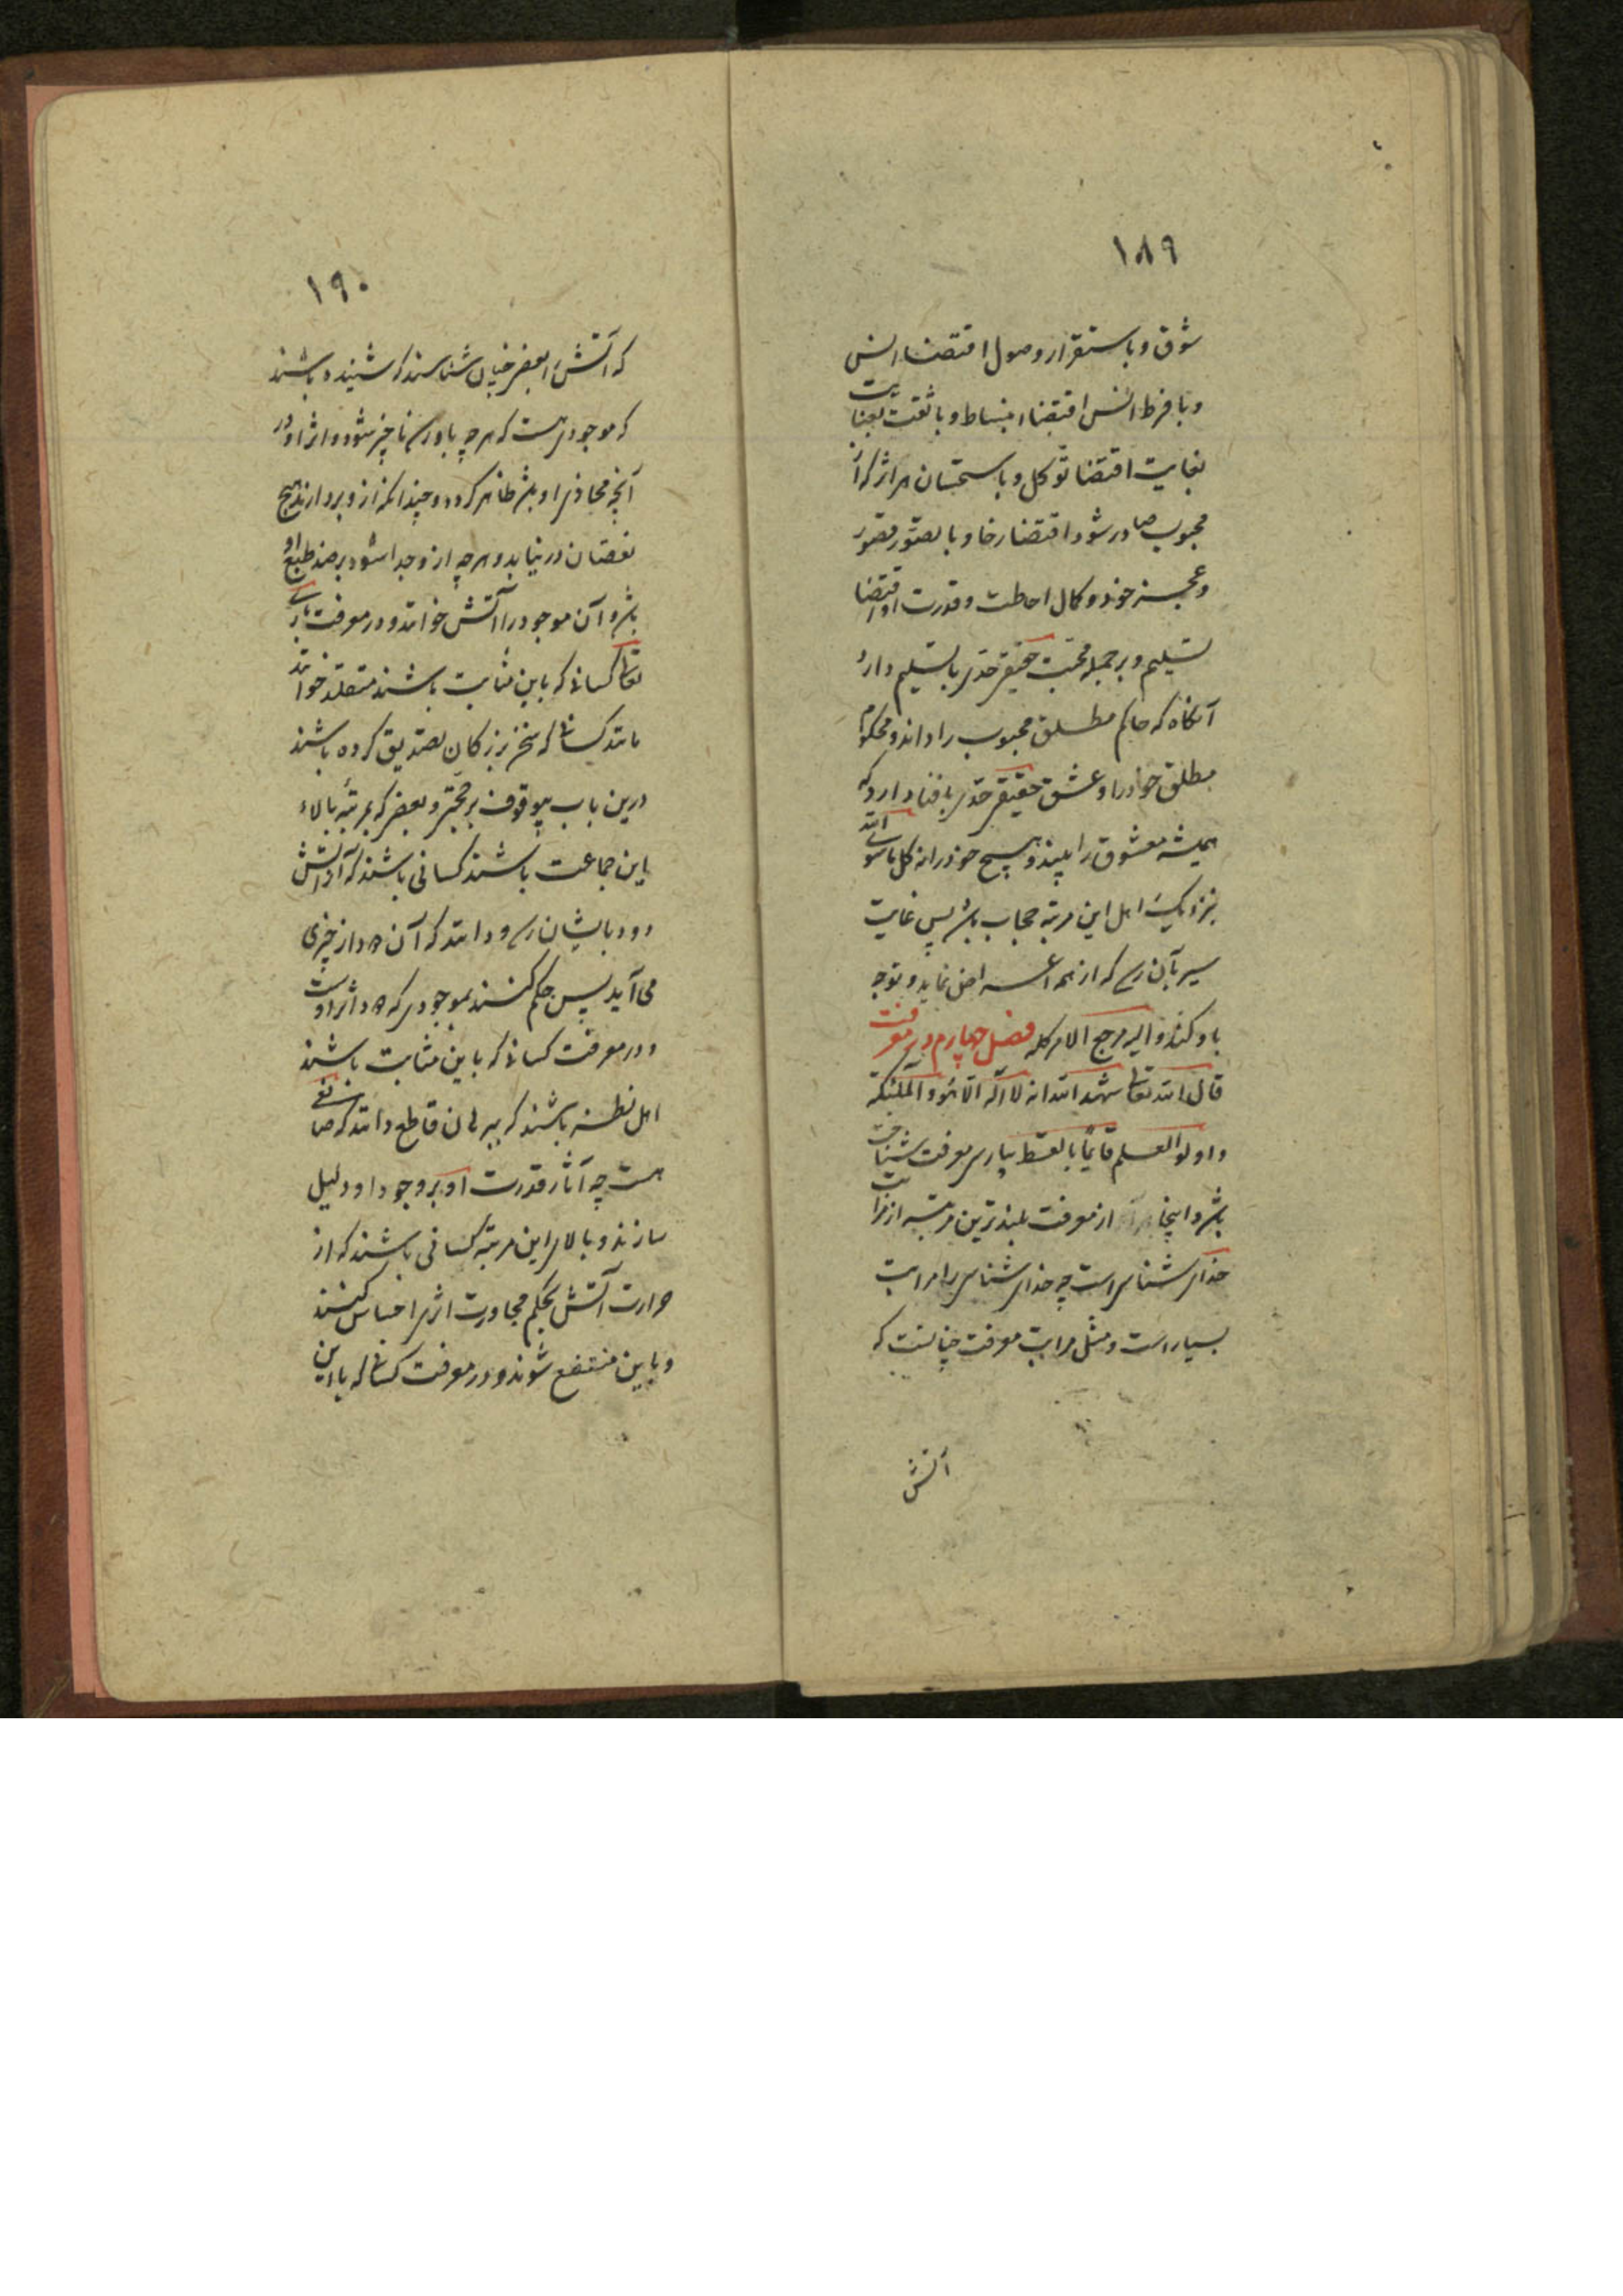 ۱۸۹
شوق و باستقرار وصول اقتضاء انس
و با فرط انس اقتضاء انبساط و با ثقت بعنایت
بغایت اقتضا توکل و باستحسان هر اثر که از
محبوب صادر شود اقتضا رضا و با تصور قصور
و عجز خود و کمال احاطت و قدرت او اقتضا
تسلیم و بر جمله محبت حقیقی حدی با تسلیم دارد
آنگاه که حاکم مطلق محبوب را داند و محکوم
مطلق خود را و عشق حقیقی حدی با فنا دارد که
همیشه معشوق را بیند و هیچ خود را نه کل ما سوی الله
بنزدیک اهل این مرتبه حجاب باشد پس غایت
سیر بآن رسد که از همه اعراض نماید و توجه
باو کند و الیه مرجع الامر کله فصل چهارم در معرفت
قال الله تعالی شهد الله انه لا اله الا هو و الملئکة
و اولوا العلم قایماً بالقسط پارسی معرفت شناخت
باشد و اینجا مراد از معرفت بلندترین مرتبه از مراتب
خدای شناسی است چه خدای شناسی را مراتب
بسیار است و مثل مراتب معرفت چنانست که
آتش
۱۹۰
که آتش را بعضی چنان شناسند که شنیده باشند
که موجودی هست که هر چه باو رسد ناچیز شود و اثر او در
آنچه محاذی او باشد ظاهر گردد و چندانکه ازو بردارند هیچ
نقصان در نیاید و هر چه از وجدا شود بر ضد طبع او
باشد و آن موجود را آتش خوانند و در معرفت باری
تعالی کسانی که باین مثابت باشند مقلد خوانند
مانند کسانی که سخن بزرگان تصدیق کرده باشند
درین باب بی وقوف بر حجتی و بعضی که بمرتبه بالاء
این جماعت باشند کسانی باشند که از آتش
دود بایشان رسد و دانند که آن دود از چیزی
می آید پس حکم کنند بموجودی که دود اثر اوست
و در معرفت کسانی که باین مثابت باشند
اهل نظر باشند که ببرهان قاطع دانند که صانعی
هست چه آثار قدرت او بر وجود او دلیل
سازند و بالای این مرتبه کسانی باشند که از
حرارت آتش بحکم مجاورت اثری احساس کنند
و باین منتفع شوند و در معرفت کسانی که باین